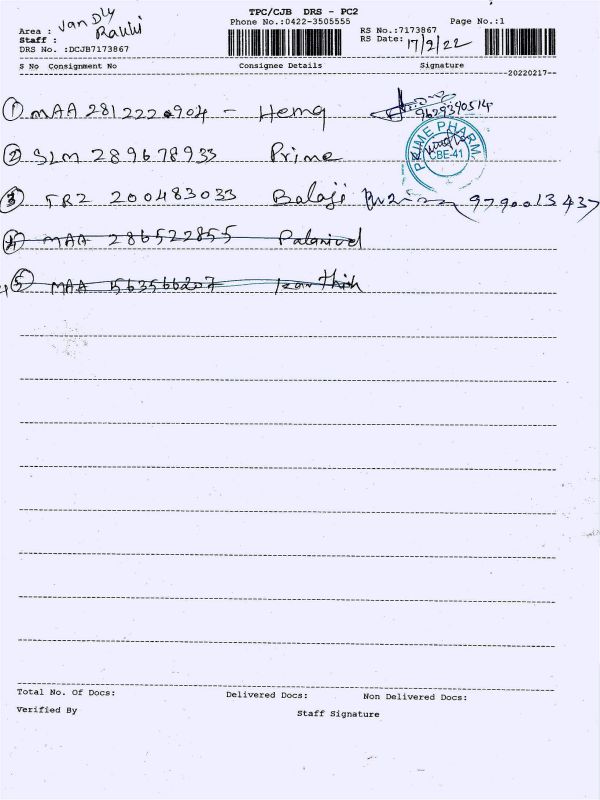 TPC/CJB DRS - PC2
Phone No.:0422-3505555 Page No.:1
Area : van Dly
Staff : Rakki
RS No.:7173867
RS Date: 17/2/22
DRS No. :DCJB7173867
S No Consignment No Consignee Details Signature
--20220217--
① MAA 281222904 - Hema 9629390514
② SLM 289678933 Prime PRIME PHARM CBE-41
③ TRZ 200483033 Balaji 9790013437
④ MAA 286522855 Palanivel
⑤ MAA 563566207
Total No. Of Docs: Delivered Docs: Non Delivered Docs:
Verified By Staff Signature